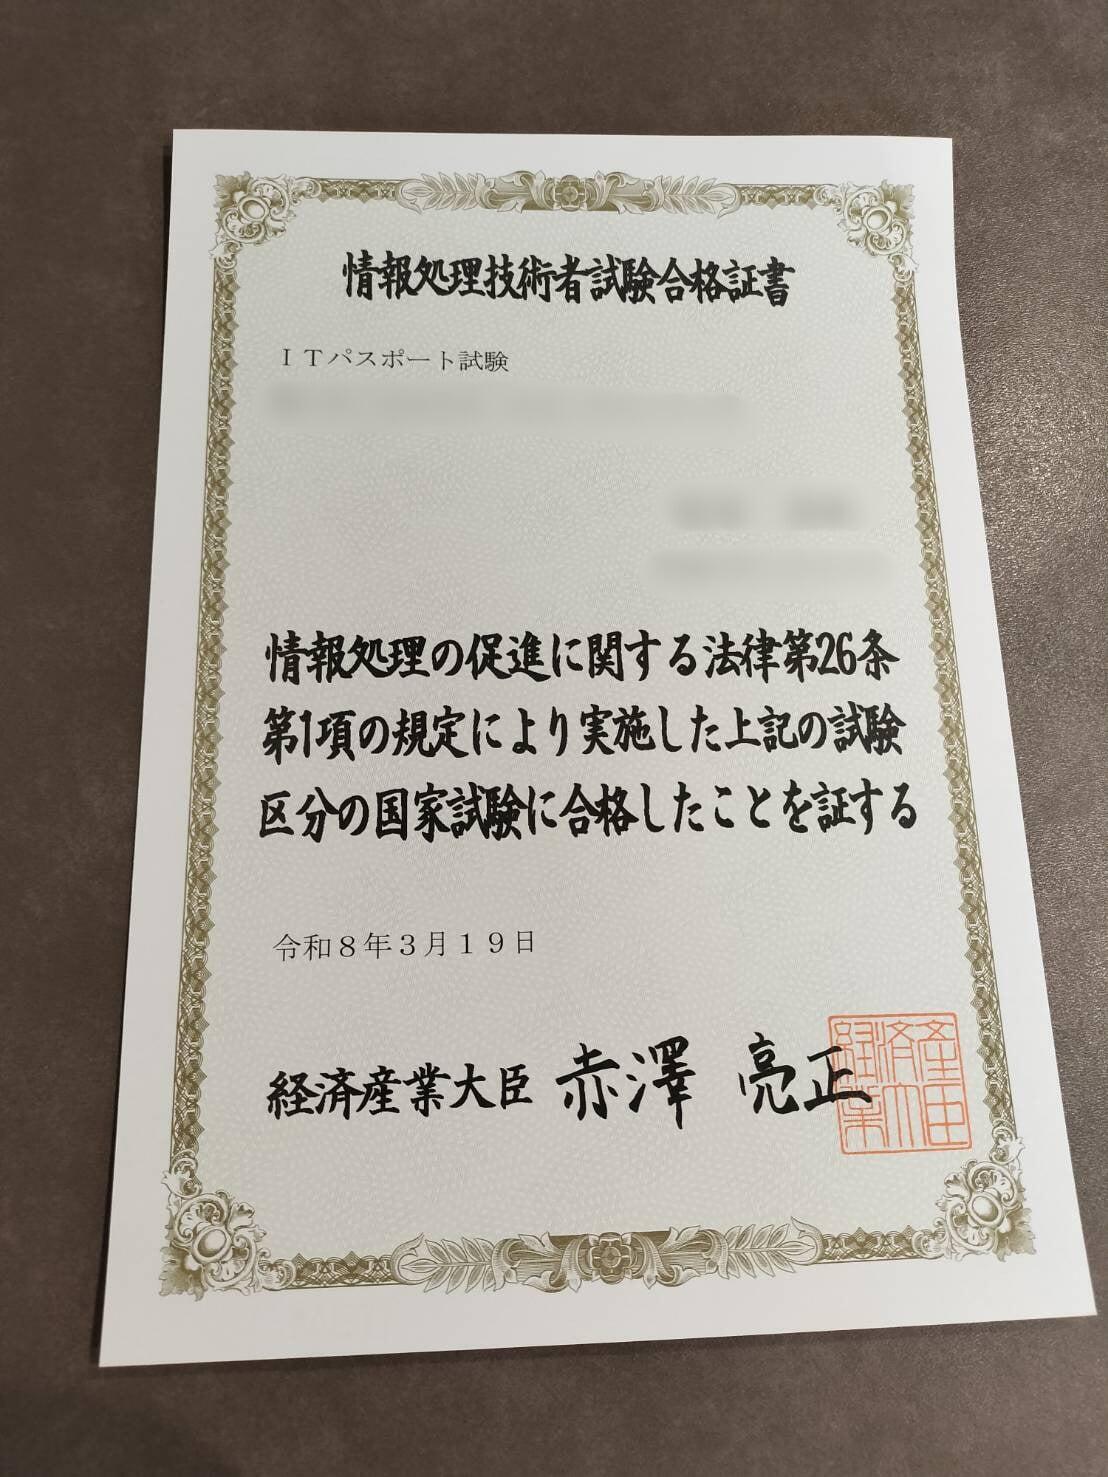 情報処理技術者試験合格証書
ＩＴパスポート試験
情報処理の促進に関する法律第26条
第1項の規定により実施した上記の試験
区分の国家試験に合格したことを証する
令和８年３月１９日
経済産業大臣 赤澤 亮正
経済産業大臣